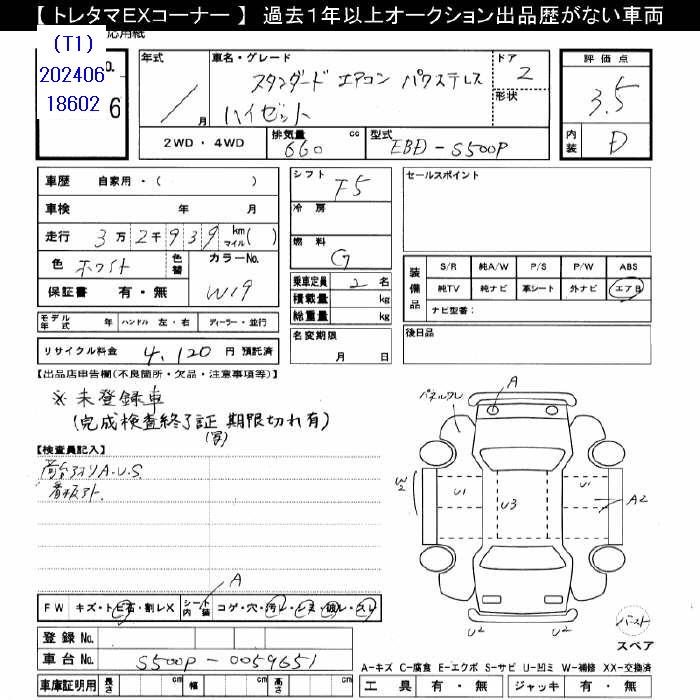 【 トレタマEXコーナー 】 過去１年以上オークション出品歴がない車両
(T1)
202406
18602
6
年式
／ 月
車名・グレード
スタンダード エアコン パワステレス
ハイゼット
ドア
2
形状
評価点
3.5
内装
D
2WD・4WD
排気量
660 cc
型式
EBD-S500P
車歴 自家用・( )
車検 年 月
走行 3万2千939 km マイル( )
色 ホワイト 色替
カラーNo.
W19
保証書 有・無
モデル年式 年 ハンドル 左・右 ディーラー・並行
リサイクル料金 4,120 円 預託済
シフト
F5
冷房
燃料
G
乗車定員 2 名
積載量 kg
総重量 kg
名変期限
月 日
セールスポイント
装備品
S/R 純A/W P/S P/W ABS
純TV 純ナビ 革シート 外ナビ エアB
ナビ型番:
後日品
【出品店申告欄(不良箇所・欠品・注意事項等)】
※未登録車
(完成検査終了証 期限切れ有)
(写)
【検査員記入】
A.U.S.
看板アト
FW キズ・トビ石・割レX シート内装 コゲ・穴・汚レ・シミ・破レ・スレ
A
登録 No.
車台 No. S500P-0059651
車庫証明用 長さ cm 幅 cm 高さ cm
A
パネルワレ
W2
U1
U3
U1
A2
U2
U2
スペア
A-キズ C-腐食 E-エクボ S-サビ U-凹ミ W-補修 XX-交換済
工具 有・無 ジャッキ 有・無